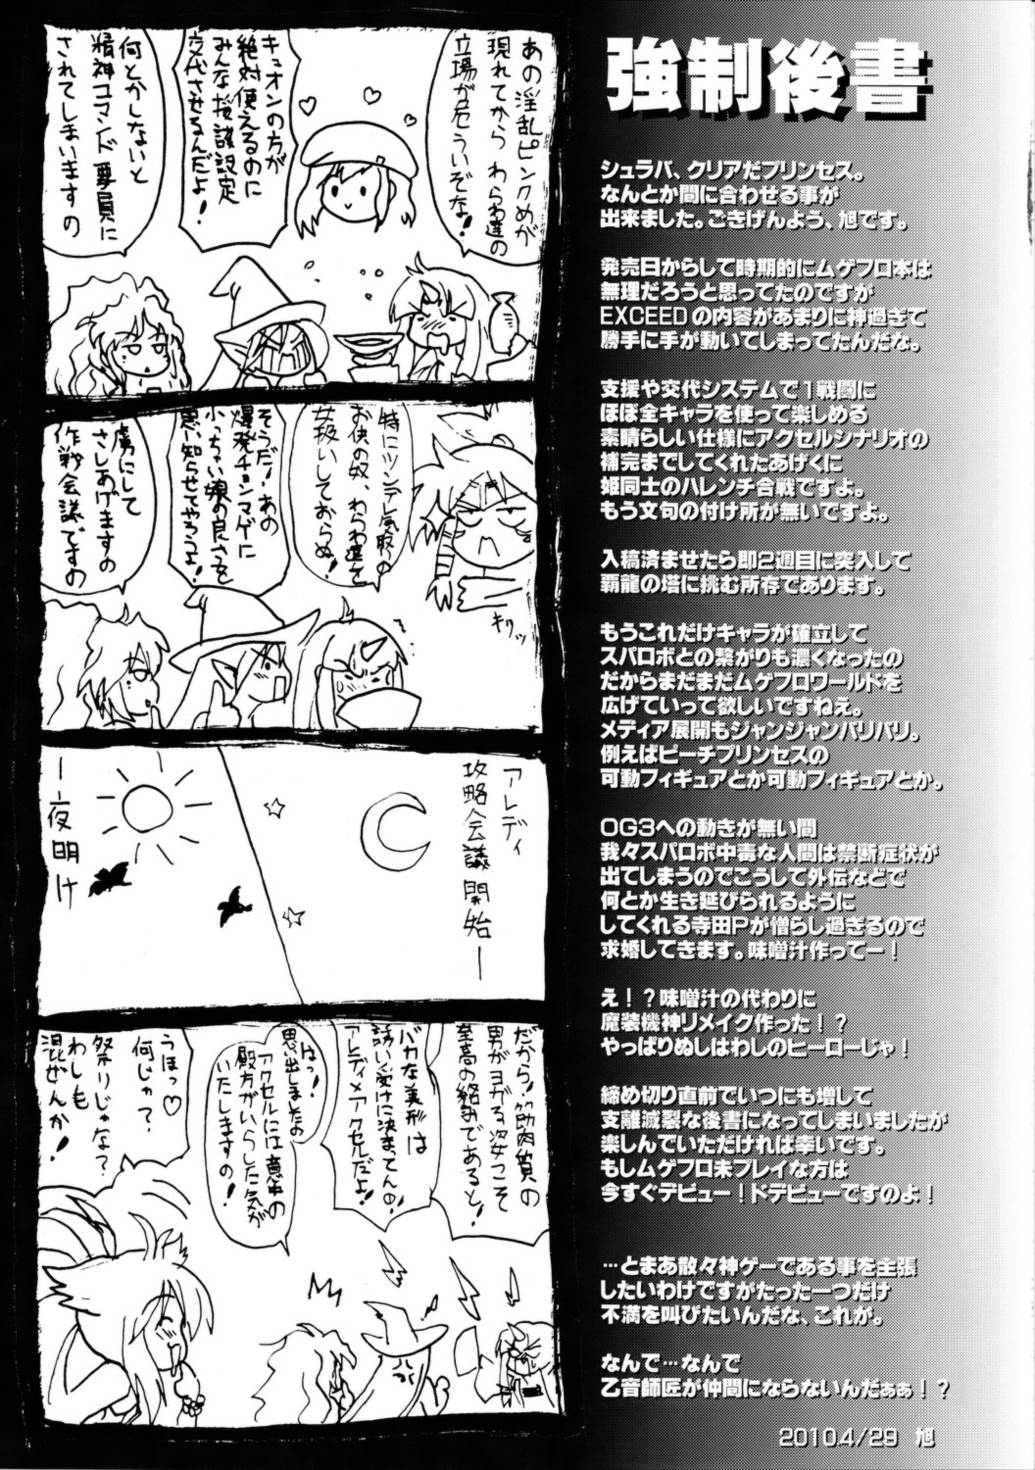 強制後書
シュラバ、クリアだプリンセス。
なんとか間に合わせる事が
出来ました。ごきげんよう、旭です。
発売日からして時期的にムゲフロ本は
無理だろうと思ってたのですが
EXCEEDの内容があまりに神過ぎて
勝手に手が動いてしまってたんだな。
支援や交代システムで1戦闘に
ほぼ全キャラを使って楽しめる
素晴らしい仕様にアクセルシナリオの
補完までしてくれたあげくに
姫同士のハレンチ合戦ですよ。
もう文句の付け所が無いですよ。
入稿済ませたら即2週目に突入して
覇龍の塔に挑む所存であります。
もうこれだけキャラが確立して
スパロボとの繋がりも濃くなったの
だからまだまだムゲフロワールドを
広げていって欲しいですねえ。
メディア展開もジャンジャンバリバリ。
例えばピーチプリンセスの
可動フィギュアとか可動フィギュアとか。
OG3への動きが無い間
我々スパロボ中毒な人間は禁断症状が
出てしまうのでこうして外伝などで
何とか生き延びられるように
してくれる寺田Pが憎らし過ぎるので
求婚してきます。味噌汁作ってー！
え！？味噌汁の代わりに
魔装機神リメイク作った！？
やっぱりぬしはわしのヒーローじゃ！
締め切り直前でいつにも増して
支離滅裂な後書になってしまいましたが
楽しんでいただければ幸いです。
もしムゲフロ未プレイな方は
今すぐデビュー！ドデビューですのよ！
…とまあ散々神ゲーである事を主張
したいわけですがたった一つだけ
不満を叫びたいんだな、これが。
なんで…なんで
乙音師匠が仲間にならないんだぁぁ！？
2010.4/29 旭
あの淫乱ピンクめが
現れてからわらわ達の
立場が危ういぞな！
キュオンの方が
絶対使えるのに
みんな桜談設定
交代させるんだよ！
何とかしないと
精神コマンド要員に
されてしまいますの
特にツンデレ気取りの
お供の奴、わらわ達を
女扱いしておらぬ！
キリッ
そうだ！あの
爆発チョンマゲに
小っちゃい娘の良さを
思い知らせてやろうよ！
虜にして
さしあげますの
作戦会議ですの
アレディ
攻略会議開始ー
ー夜明け
だから！筋肉質の
男がヨガる姿こそ
至高の絡みであると！
バカな美形は
誘い受けに決まってんの！
アレディ×アクセルだよ！
はっ！
思い出しましたよ
アクセルには意中の
殿方がいらした気が
いたしますの！
うほっ♡
何じゃ？
祭りじゃな？
わしも
混ぜんか！